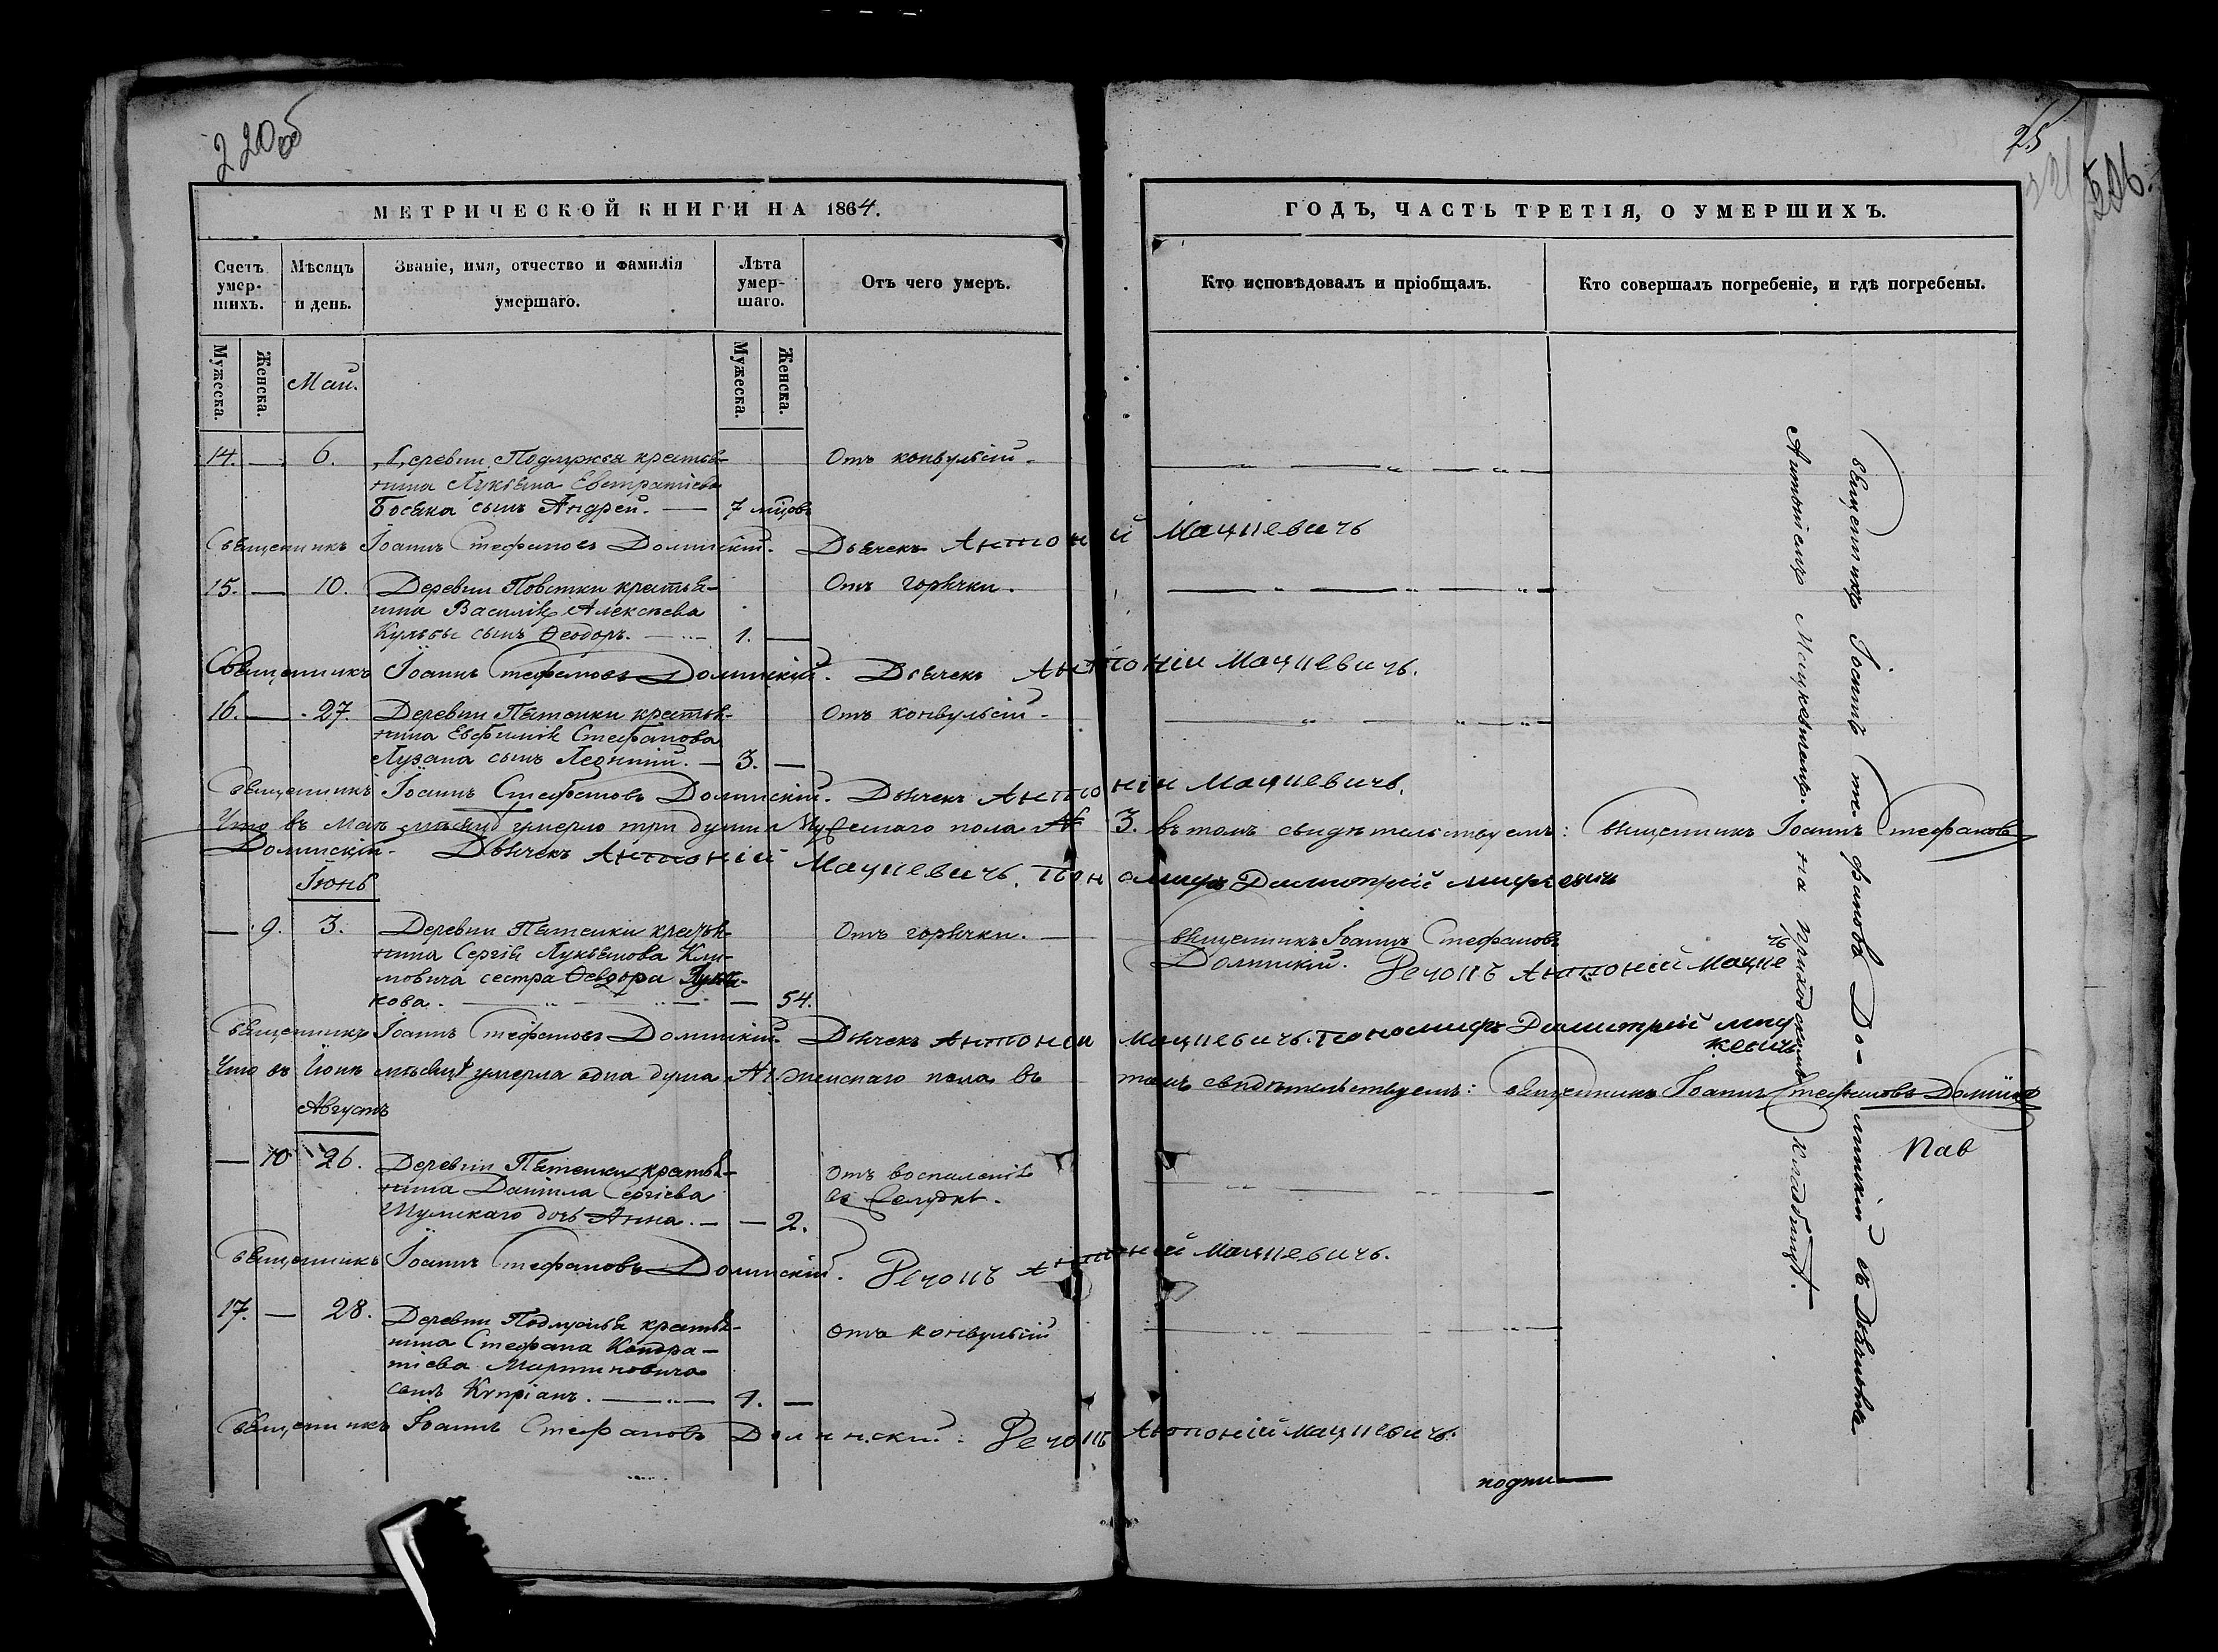 220об
25
МЕТРИЧЕСКОЙ КНИГИ НА 1864.
ГОДЪ, ЧАСТЬ ТРЕТІЯ, О УМЕРШИХЪ.
Счетъ умер-шихъ.
Мѣсяцъ и день.
Званіе, имя, отчество и фамилія умершаго.
Лѣта умер-шаго.
Отъ чего умеръ.
Кто исповѣдовалъ и пріобщалъ.
Кто совершалъ погребеніе, и гдѣ погребены.
Мужеска.
Женска.
Май.
Мужеска.
Женска.
14. — 6. Деревни Подлужья крестья- Отъ конвульсій.
нина Лукьяна Евстратіева
Босяка сынъ Андрей. — 7 мцовъ
Священникъ Іоаннъ Стефановъ Долинскій. Дьячекъ Антоній Мацкевичъ
15. — 10. Деревни крестья- Отъ горячки.
нина Василія Алексѣева
Кульбы сынъ Ѳеодоръ. — 1. —
Священникъ Іоаннъ Стефановъ Долинскій. Дьячекъ Антоній Мацкевичъ.
16. — 27. Деревни крестья- Отъ конвульсій.
нина Евфимія Стефанова
Лузана сынъ Леонтій. — 3. —
Священникъ Іоаннъ Стефановъ Долинскій. Дьячекъ Антоній Мацкевичъ.
Что въ маѣ мѣсяцѣ умерло три души мужескаго пола № 3. въ томъ свидѣтельствуемъ: Священникъ Іоаннъ Стефановъ
Долинскій. Дьячекъ Антоній Мацкевичъ. Пономаръ Димитрій
Іюнь
— 9. 3. Деревни крестья- Отъ горячки. — Священникъ Іоаннъ Стефановъ
нина Сергія Лукьянова Кли- Долинскій. Антоній Мацке
мовича сестра Ѳеодора вичъ
— 54.
Священникъ Іоаннъ Стефановъ Долинскій. Дьячекъ Антоній Мацкевичъ. Пономаръ Димитрій
Что въ Іюнѣ мѣсяцѣ умерла одна душа № 1. женскаго пола въ томъ свидѣтельствуемъ: Священникъ Іоаннъ Стефановъ
Августъ
— 10 26. Деревни крестья- Отъ воспаленія
нина Даніила Сергіева въ желудкѣ.
Шумскаго дочь Анна. — — 2.
Священникъ Іоаннъ Стефановъ Долинскій. Антоній Мацкевичъ.
17. — 28. Деревни Подлужья крестья- Отъ конвульсій
нина Стефана Кондра-
тіева Мартиновича
сынъ Кипріанъ. — 1. —
Священникъ Іоаннъ Стефановъ Долинскій. Антоній Мацкевичъ.
Священникъ Іоаннъ Стефановъ Долинскій съ Дьячкомъ
Антоніемъ Мацкевичемъ на приходскомъ кладбищѣ.